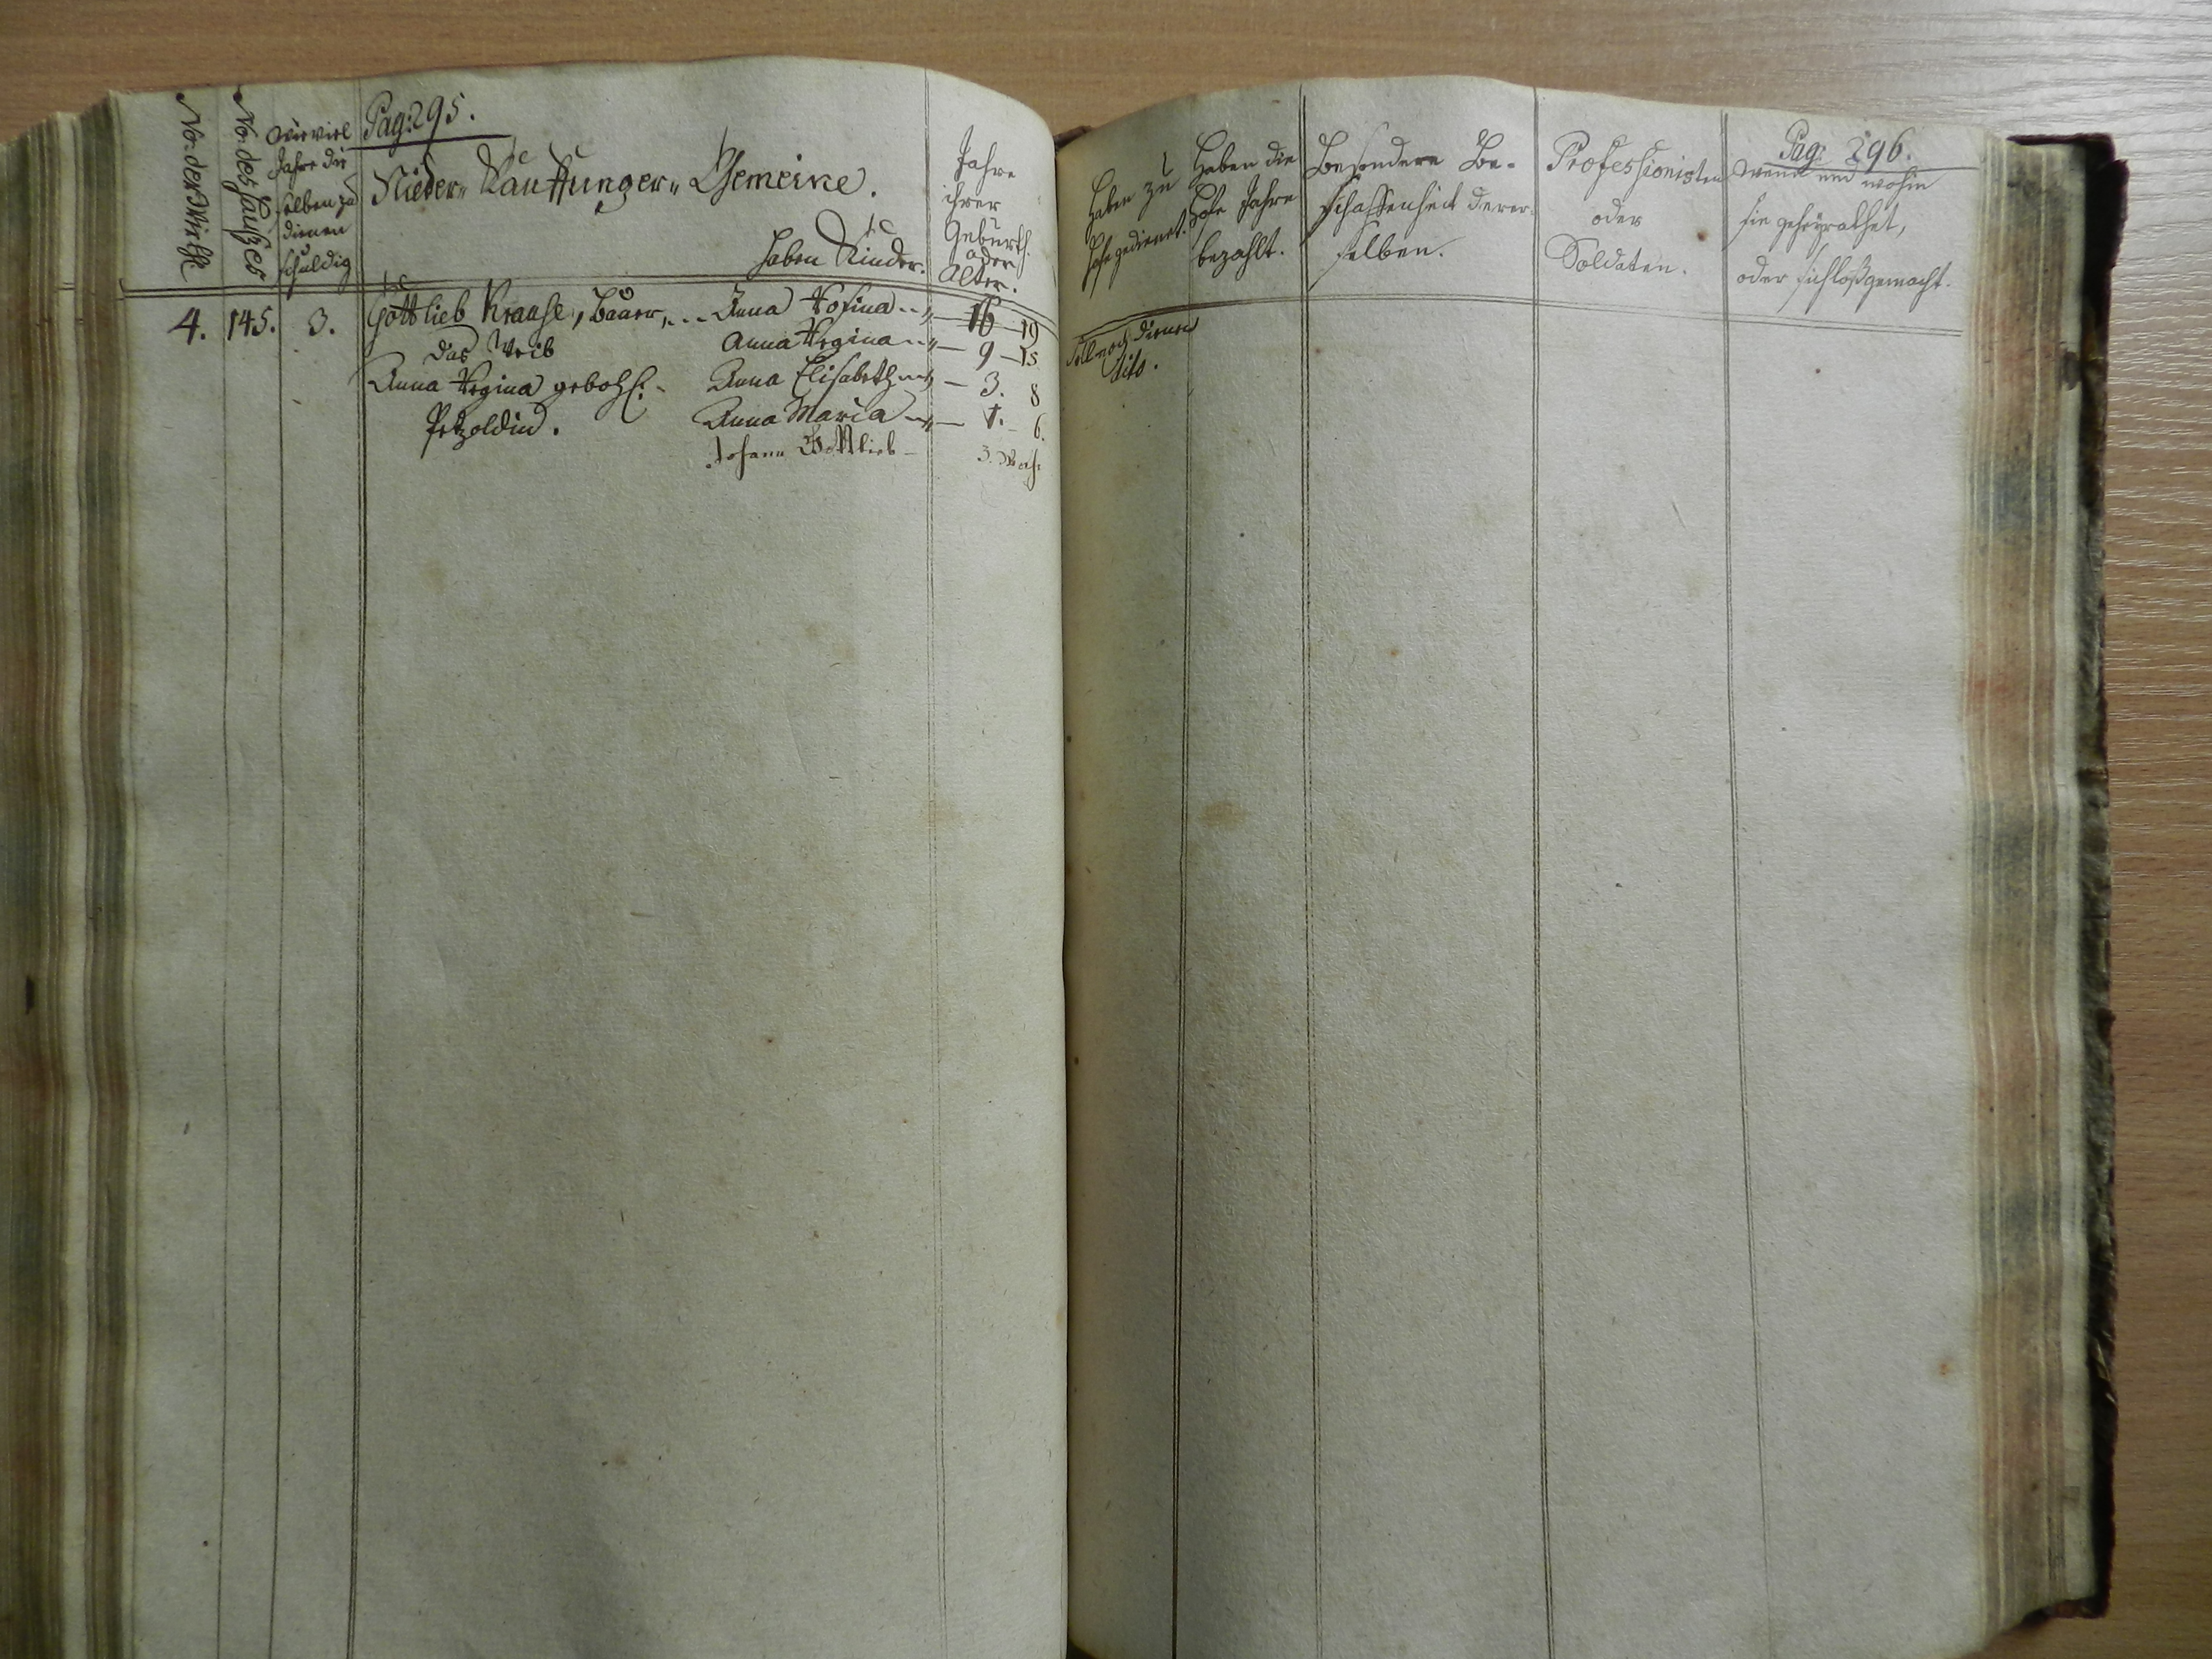 Pag: 295.
No: der Wirthe
No: des Haußes
Wie viel
Jahre die
selben zu
dienen
schuldig
Nieder„ Kauffunger„ Gemeine.
haben Kinder.
Jahre
ihrer
Geburth
oder
Alter.
4. 145. 3. Gottlieb Krause, Bauer, Anna Rosina — 16 19
das Weib Anna Regina — 9 — 15
Anna Regina gebohr. Anna Elisabeth — 3. 8
Petzoldin. Anna Maria — 1. 6.
Johann Gottlieb — 3. Woch
Pag: 296.
Haben zu
Hofe gedienet.
Haben die
Hofe Jahre
bezahlt.
Besondere Be-
schaffenheit derer-
selben.
Professionisten
oder
Soldaten.
Wenn und wohin
sie geheyrathet,
oder sich loßgemacht.
Soll noch dienen
dito.